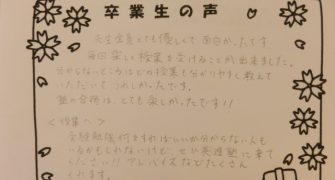 卒業生の声
先生全員とても優しくて面白かったです。
毎回楽しく授業を受けることが出来ました。
分からないところはどの授業も分かりやすく教えて
いただいてうれしかったです。
塾の合宿は、とても楽しかったです!!
<後輩へ>
受験勉強何をすればいいか分からない人も
いるかもしれないけど、ぜひ英進塾に来て
ください!! アドバイスなどたくさん
くれます。